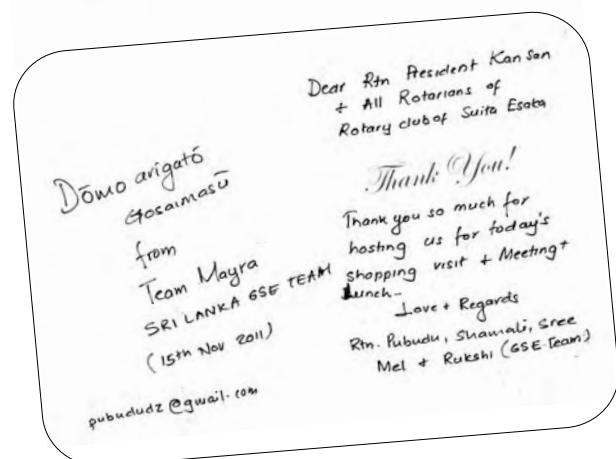 Dōmo arigató
Gosaimasū
from
Team Mayra
SRI LANKA GSE TEAM
(15th Nov 2011)
pubududz@gmail.com
Dear Rtn President Kan San
+ All Rotarians of
Rotary club of Suita Esaka
Thank You!
Thank you so much for
hosting us for today's
shopping visit + Meeting +
Lunch..
Love + Regards
Rtn. Pubudu, Shamali, Sree
Mel + Rukshi (GSE Team)